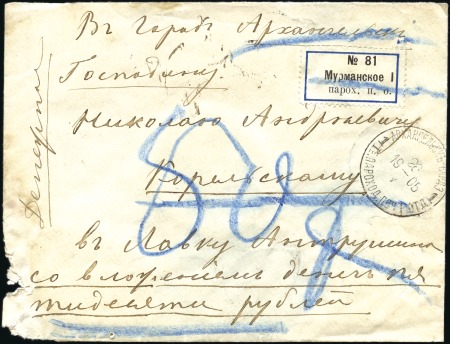 Въ Городъ Архангельскъ
№ 81
Мурманское I
парох. п. о.
Господину
Николаю Андреевичу
Корельскому
въ Лавку Антрушина
со вложеніемъ денегъ пя
тидесяти рублей
Денежное
50 р
1905